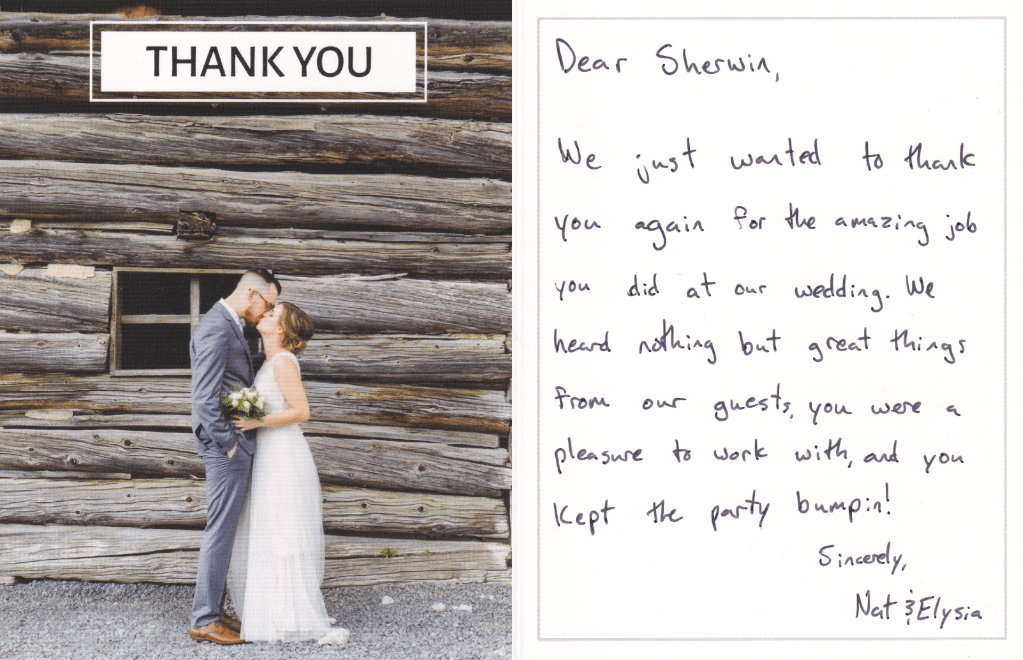 THANK YOU
Dear Sherwin,
We just wanted to thank
you again for the amazing job
you did at our wedding. We
heard nothing but great things
from our guests, you were a
pleasure to work with, and you
kept the party bumpin!
Sincerely,
Nat & Elysia